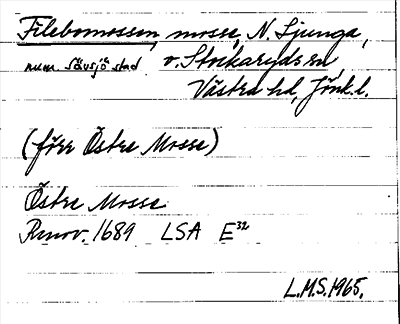 Filebomossen, mosse, N. Ljunga,
num. Sävsjö stad v. Stockaryds sn,
Västra hd, Jönk.l.
(förr Östre Mosse)
Östre Mosse
Renov. 1689 LSA E³²
L.M.S. 1965.